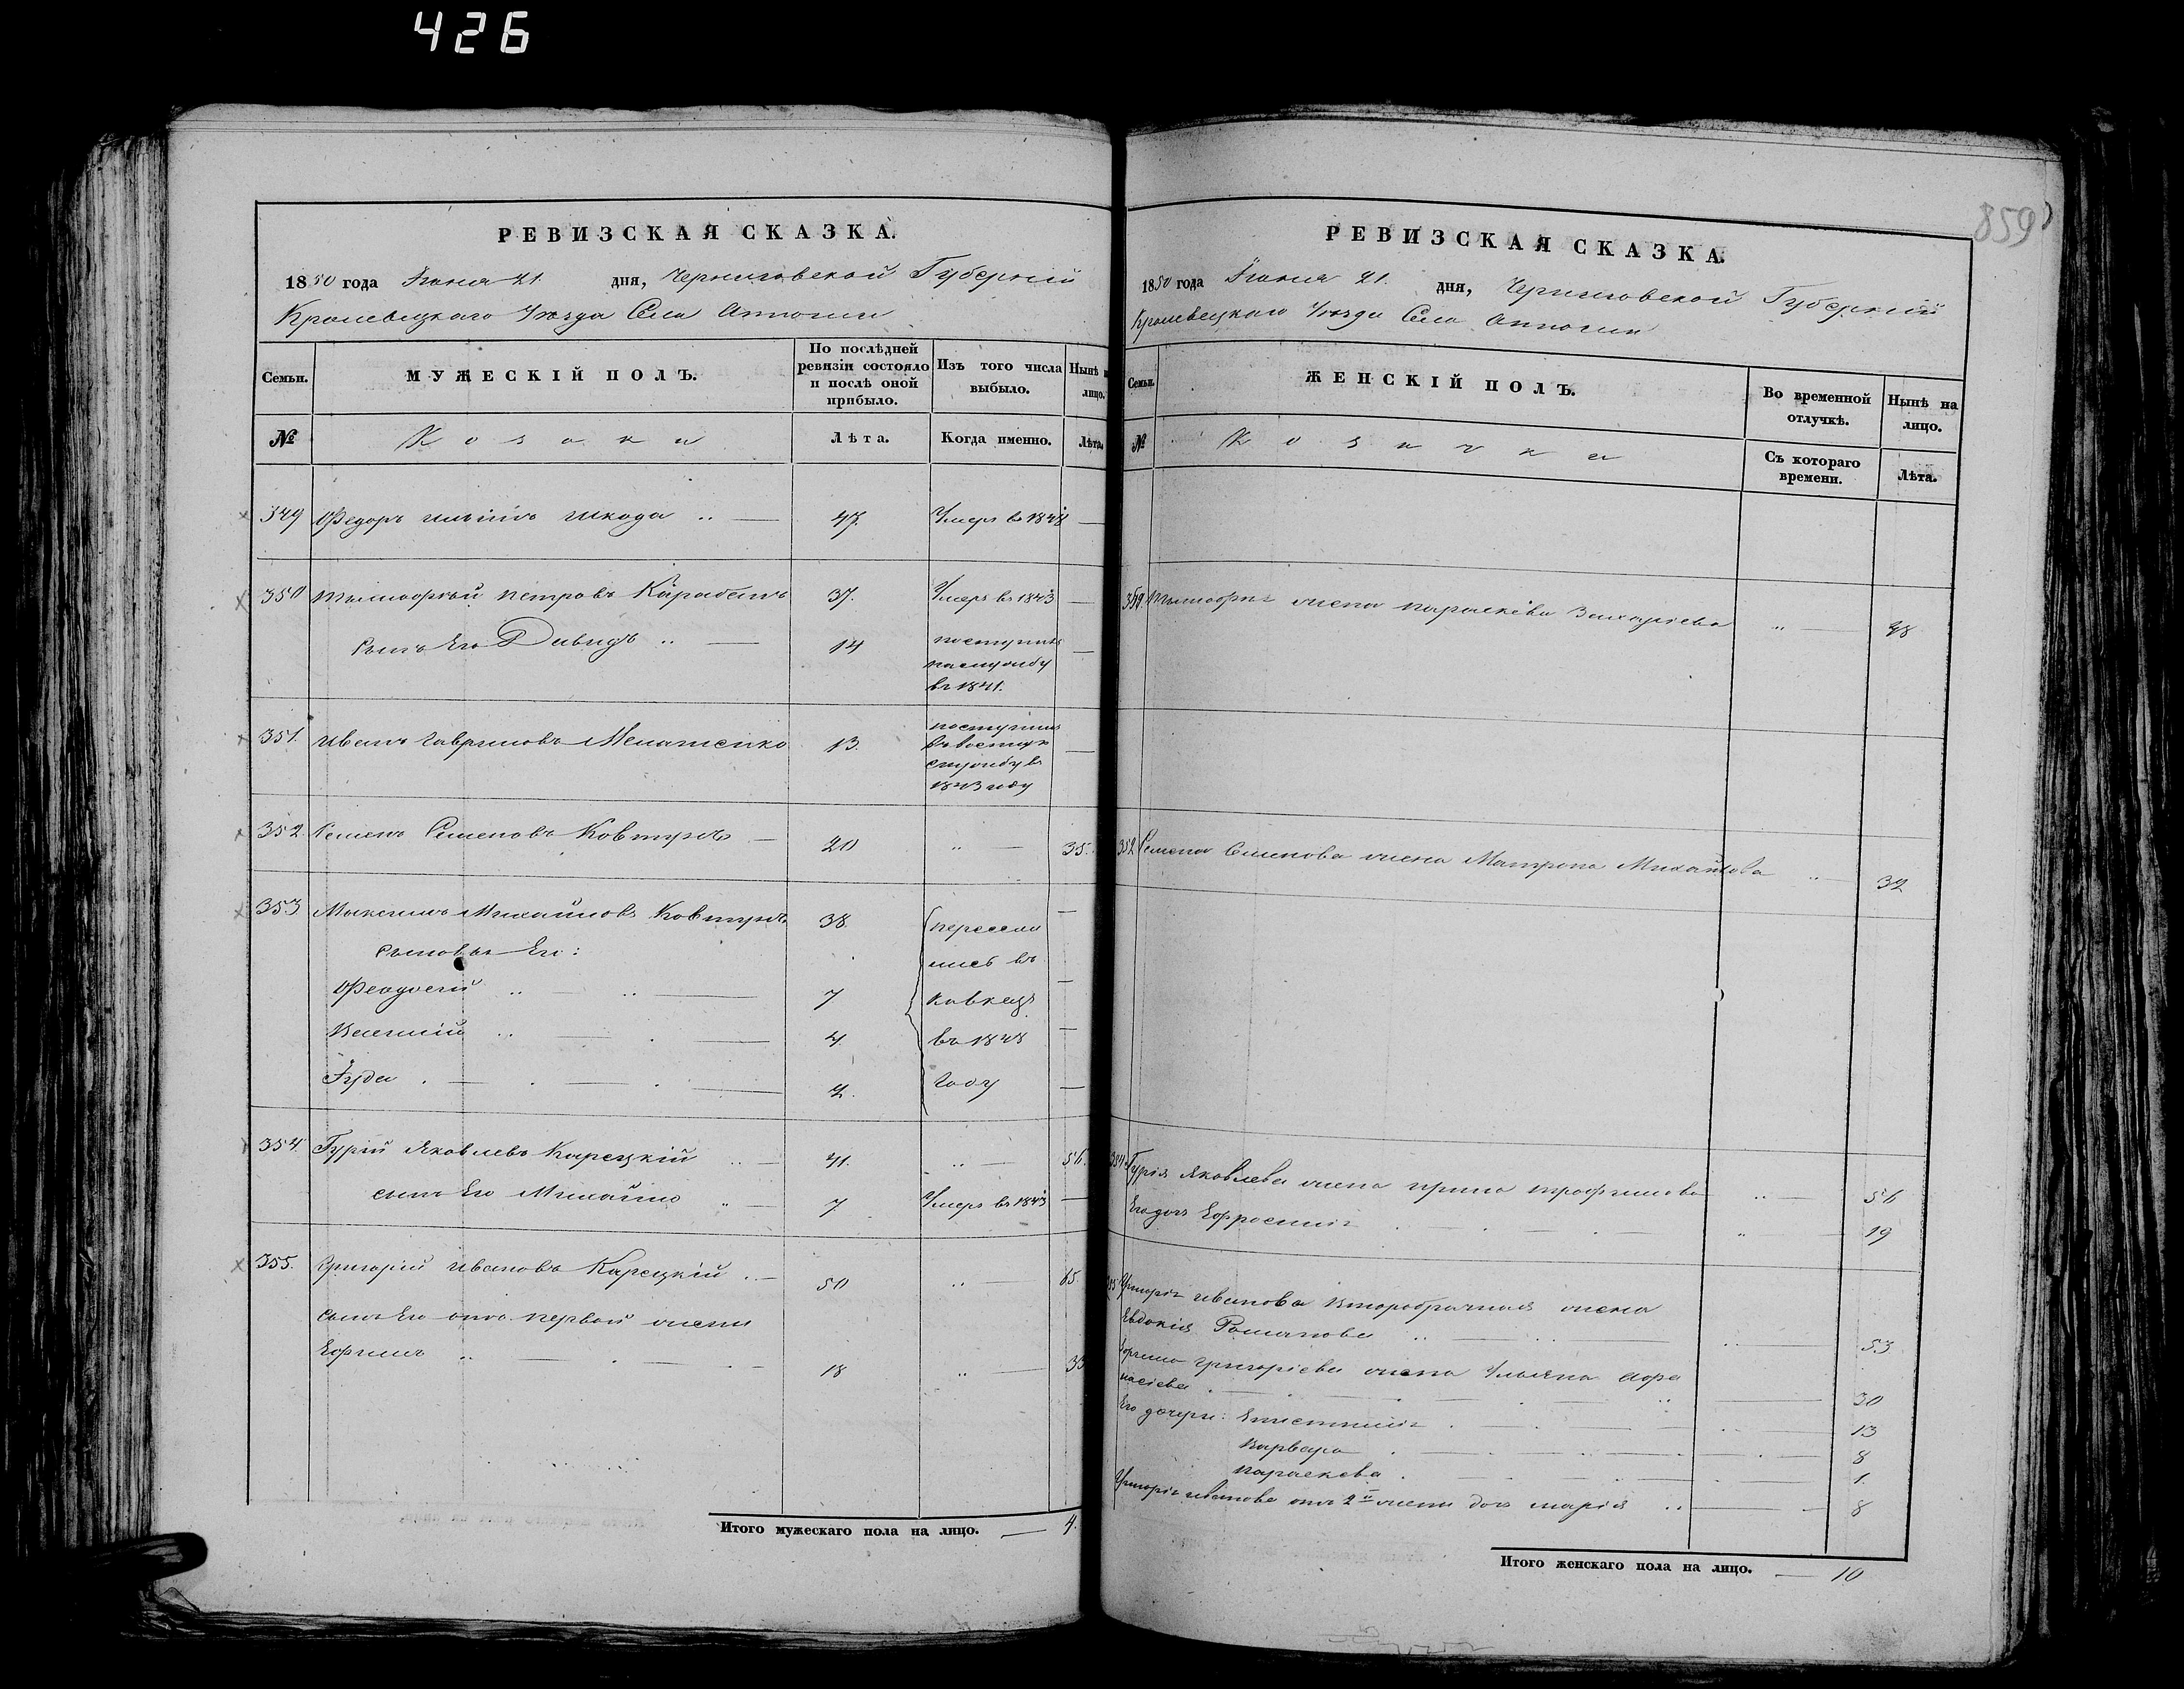 426
859
РЕВИЗСКАЯ СКАЗКА.
1850 года Іюня 21. дня, Черниговской Губерніи
Кролевецкаго Уѣзда Села
Семьи.
МУЖЕСКІЙ ПОЛЪ.
По послѣдней ревизіи состояло и послѣ оной прибыло.
Изъ того числа выбыло.
Нынѣ на лицо.
№
Козаки
Лѣта.
Когда именно.
Лѣта.
349 Федоръ Ильинъ Шкода 47. Умеръ въ 1848
350 Тимофѣй Петровъ 37. Умеръ въ 1843
сынъ Его Давидъ 14 поступилъ
на службу
въ 1841.
351. Иванъ Гавриловъ 13. поступилъ
въ
службу въ
1843 году
352. Семенъ Семеновъ Ковтунъ 20 35.
353 Максимъ Михайловъ Ковтунъ 38. пересели
сыновья Его: лись въ
Феодосій 7 Кавказъ
4. въ 1848
Іуда 2. Году
354. Гурій Яковлевъ Карецкій 41. 56.
сынъ Его Михайло 7. Умеръ въ 1843
355. Григорій Ивановъ Карецкій 50 65.
сынъ Его отъ первой жены
Ефимъ 18 33
Итого мужескаго пола на лицо. 4.
РЕВИЗСКАЯ СКАЗКА.
1850 года Іюня 21. дня, Черниговской Губерніи
Кролевецкаго Уѣзда Села
Семьи.
ЖЕНСКІЙ ПОЛЪ.
Во временной отлучкѣ.
Нынѣ на лицо.
№
Козачки
Съ котораго времени.
Лѣта.
350 Тимофея жена Параскева Захаріева 48
352 Семена Семенова жена Матрона Михайлова 32
354. Гурія Яковлева жена Ирина Трофимова 56
Его дочь Ефросинія 19
355 Григорія Иванова второбрачная жена
Евдокія Романова 53
Ефима Григоріева жена Ульяна Афа
насіева 30
Его дочери: 13
Варвара 8
Параскева 1.
Григорія Иванова отъ 2й жены дочь Марія 8
Итого женскаго пола на лицо. 10